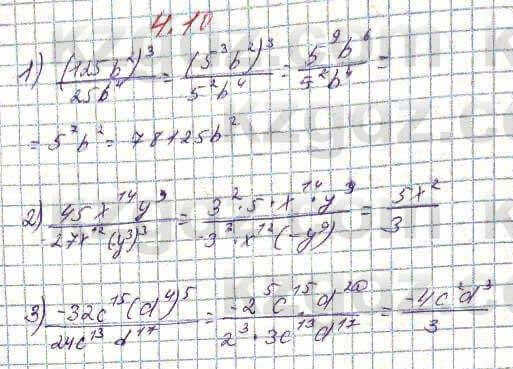 4.10
1) (125b²)³/25b⁴ = (5³b²)³/5²b⁴ = 5⁹b⁶/5²b⁴ =
= 5⁷b² = 78125b²
2) 45x¹⁴y⁹/27x¹²(y³)³ = 3²·5·x¹⁴·y⁹/3³·x¹²(-y⁹) = 5x²/3
3) -32c¹⁵(d⁴)⁵/24c¹³d¹⁷ = -2⁵c¹⁵·d²⁰/2³·3c¹³d¹⁷ = -4c²d³/3